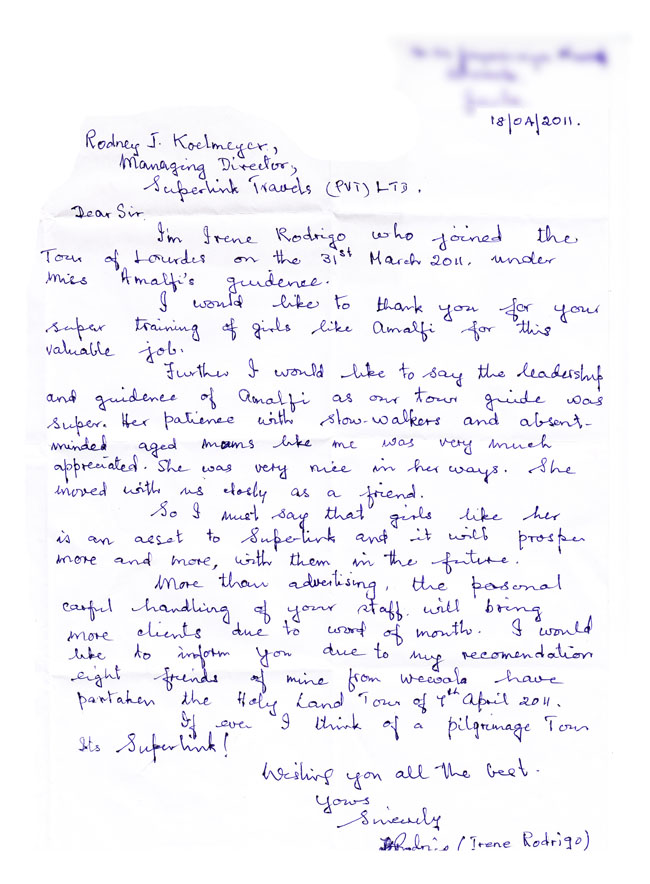 18/04/2011.
Rodney J. Koelmeyer,
Managing Director,
Superlink Travels (PVT) LTD.
Dear Sir,
I'm Irene Rodrigo who joined the
Tour of Lourdes on the 31st March 2011. under
Miss Amalfi's guidence.
I would like to thank you for your
super training of girls like Amalfi for this
valuable job.
Further I would like to say the leadership
and guidence of Amalfi as our tour guide was
super. Her patience with slow-walkers and absent-
minded aged mums like me was very much
appreciated. She was very nice in her ways. She
moved with us closly as a friend.
So I must say that girls like her
is an asset to Superlink and it will prosper
more and more, with them in the future.
More than advertising, the personal
careful handling of your staff will bring
more clients due to word of month. I would
like to inform you due to my recomendation
eight friends of mine from wewala have
partaken the Holy Land Tour of 7th April 2011.
If ever I think of a pilgrimage Tour
Its Superlink!
Wishing you all the best.
Yours
Sincerely
(Irene Rodrigo)